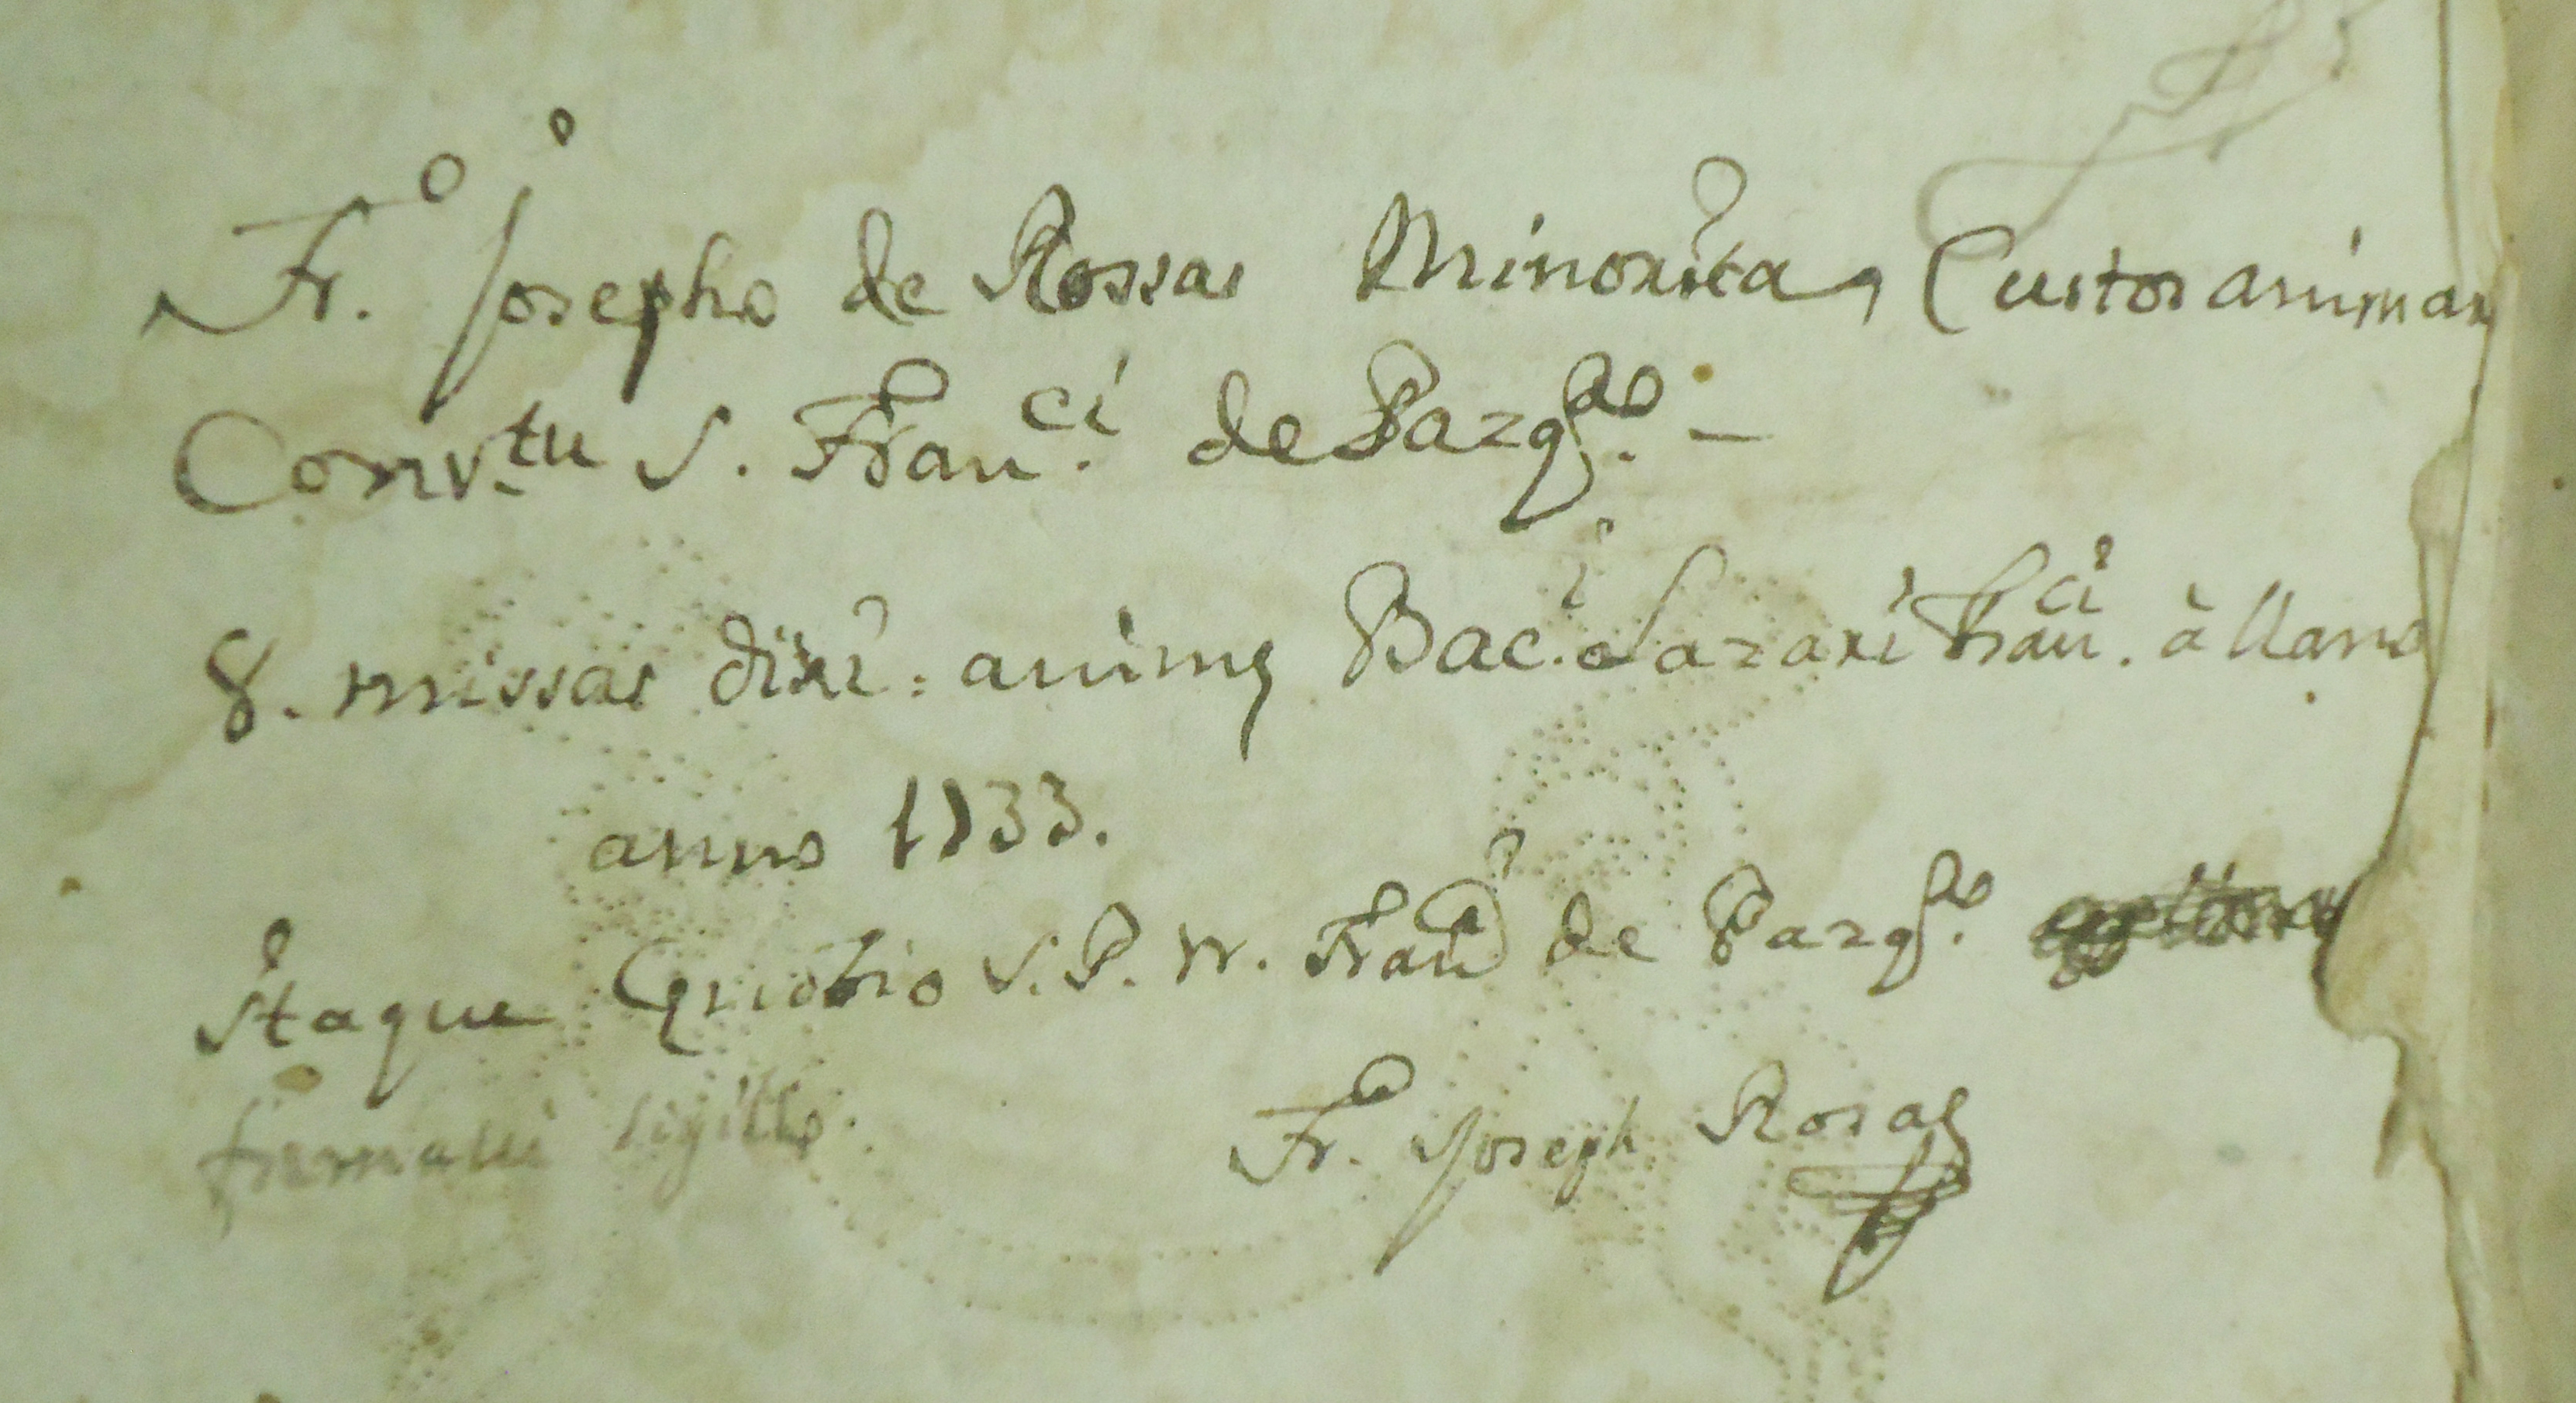 Fr. Josepho de Rossas Minorita, Custos animar
Conv.tu S. Fran.ci de Pazq.ro –
8. missas dixi: animę Bac.i Lazari Fran.ci à llano
anno 1733.
Itaque S. P. N. Fran.ci de Pazq.ro
firmavi sigillo.
Fr. Joseph Rosas